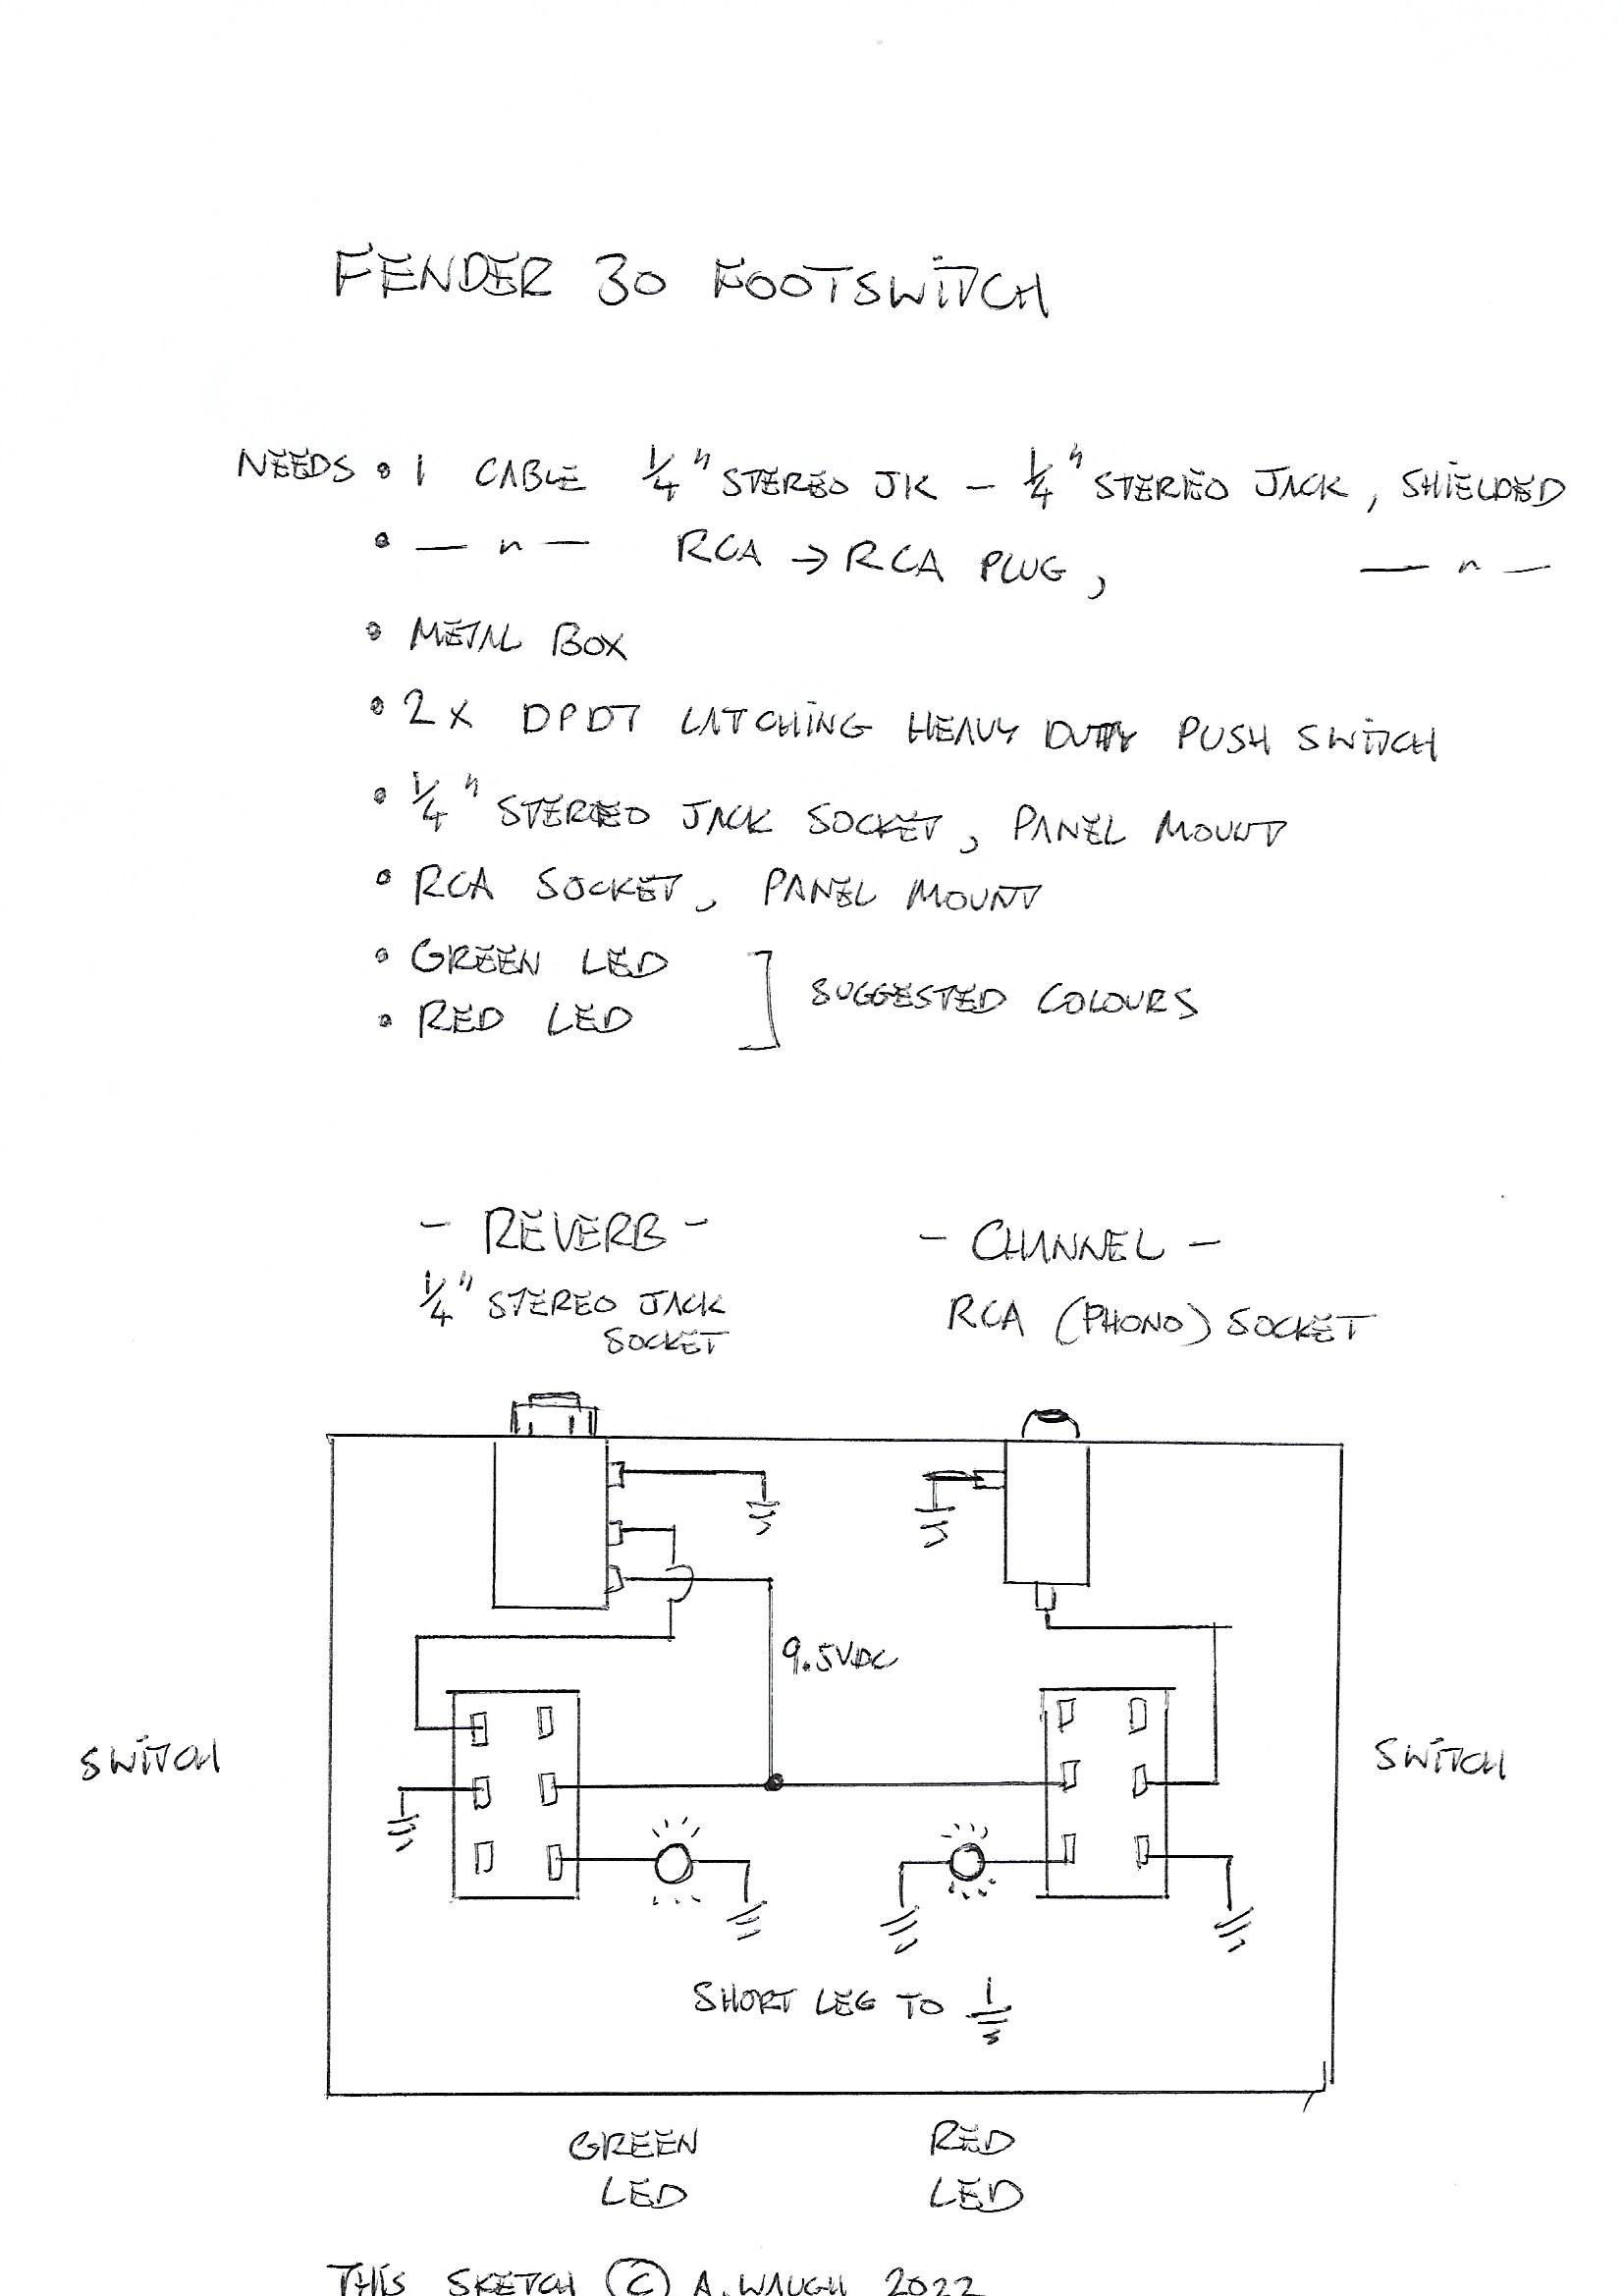 FENDER 30 FOOTSWITCH
NEEDS • 1 CABLE 1/4" STEREO JK - 1/4" STEREO JACK, SHIELDED
• — " — RCA → RCA PLUG, — " —
• METAL BOX
• 2 X DPDT LATCHING HEAVY DUTY PUSH SWITCH
• 1/4" STEREO JACK SOCKET, PANEL MOUNT
• RCA SOCKET, PANEL MOUNT
• GREEN LED
• RED LED
] SUGGESTED COLOURS
- REVERB -
1/4" STEREO JACK
SOCKET
- CHANNEL -
RCA (PHONO) SOCKET
9.5VDC
SWITCH
SWITCH
SHORT LEG TO
GREEN
LED
RED
LED
THIS SKETCH © A. WAUGH 2022